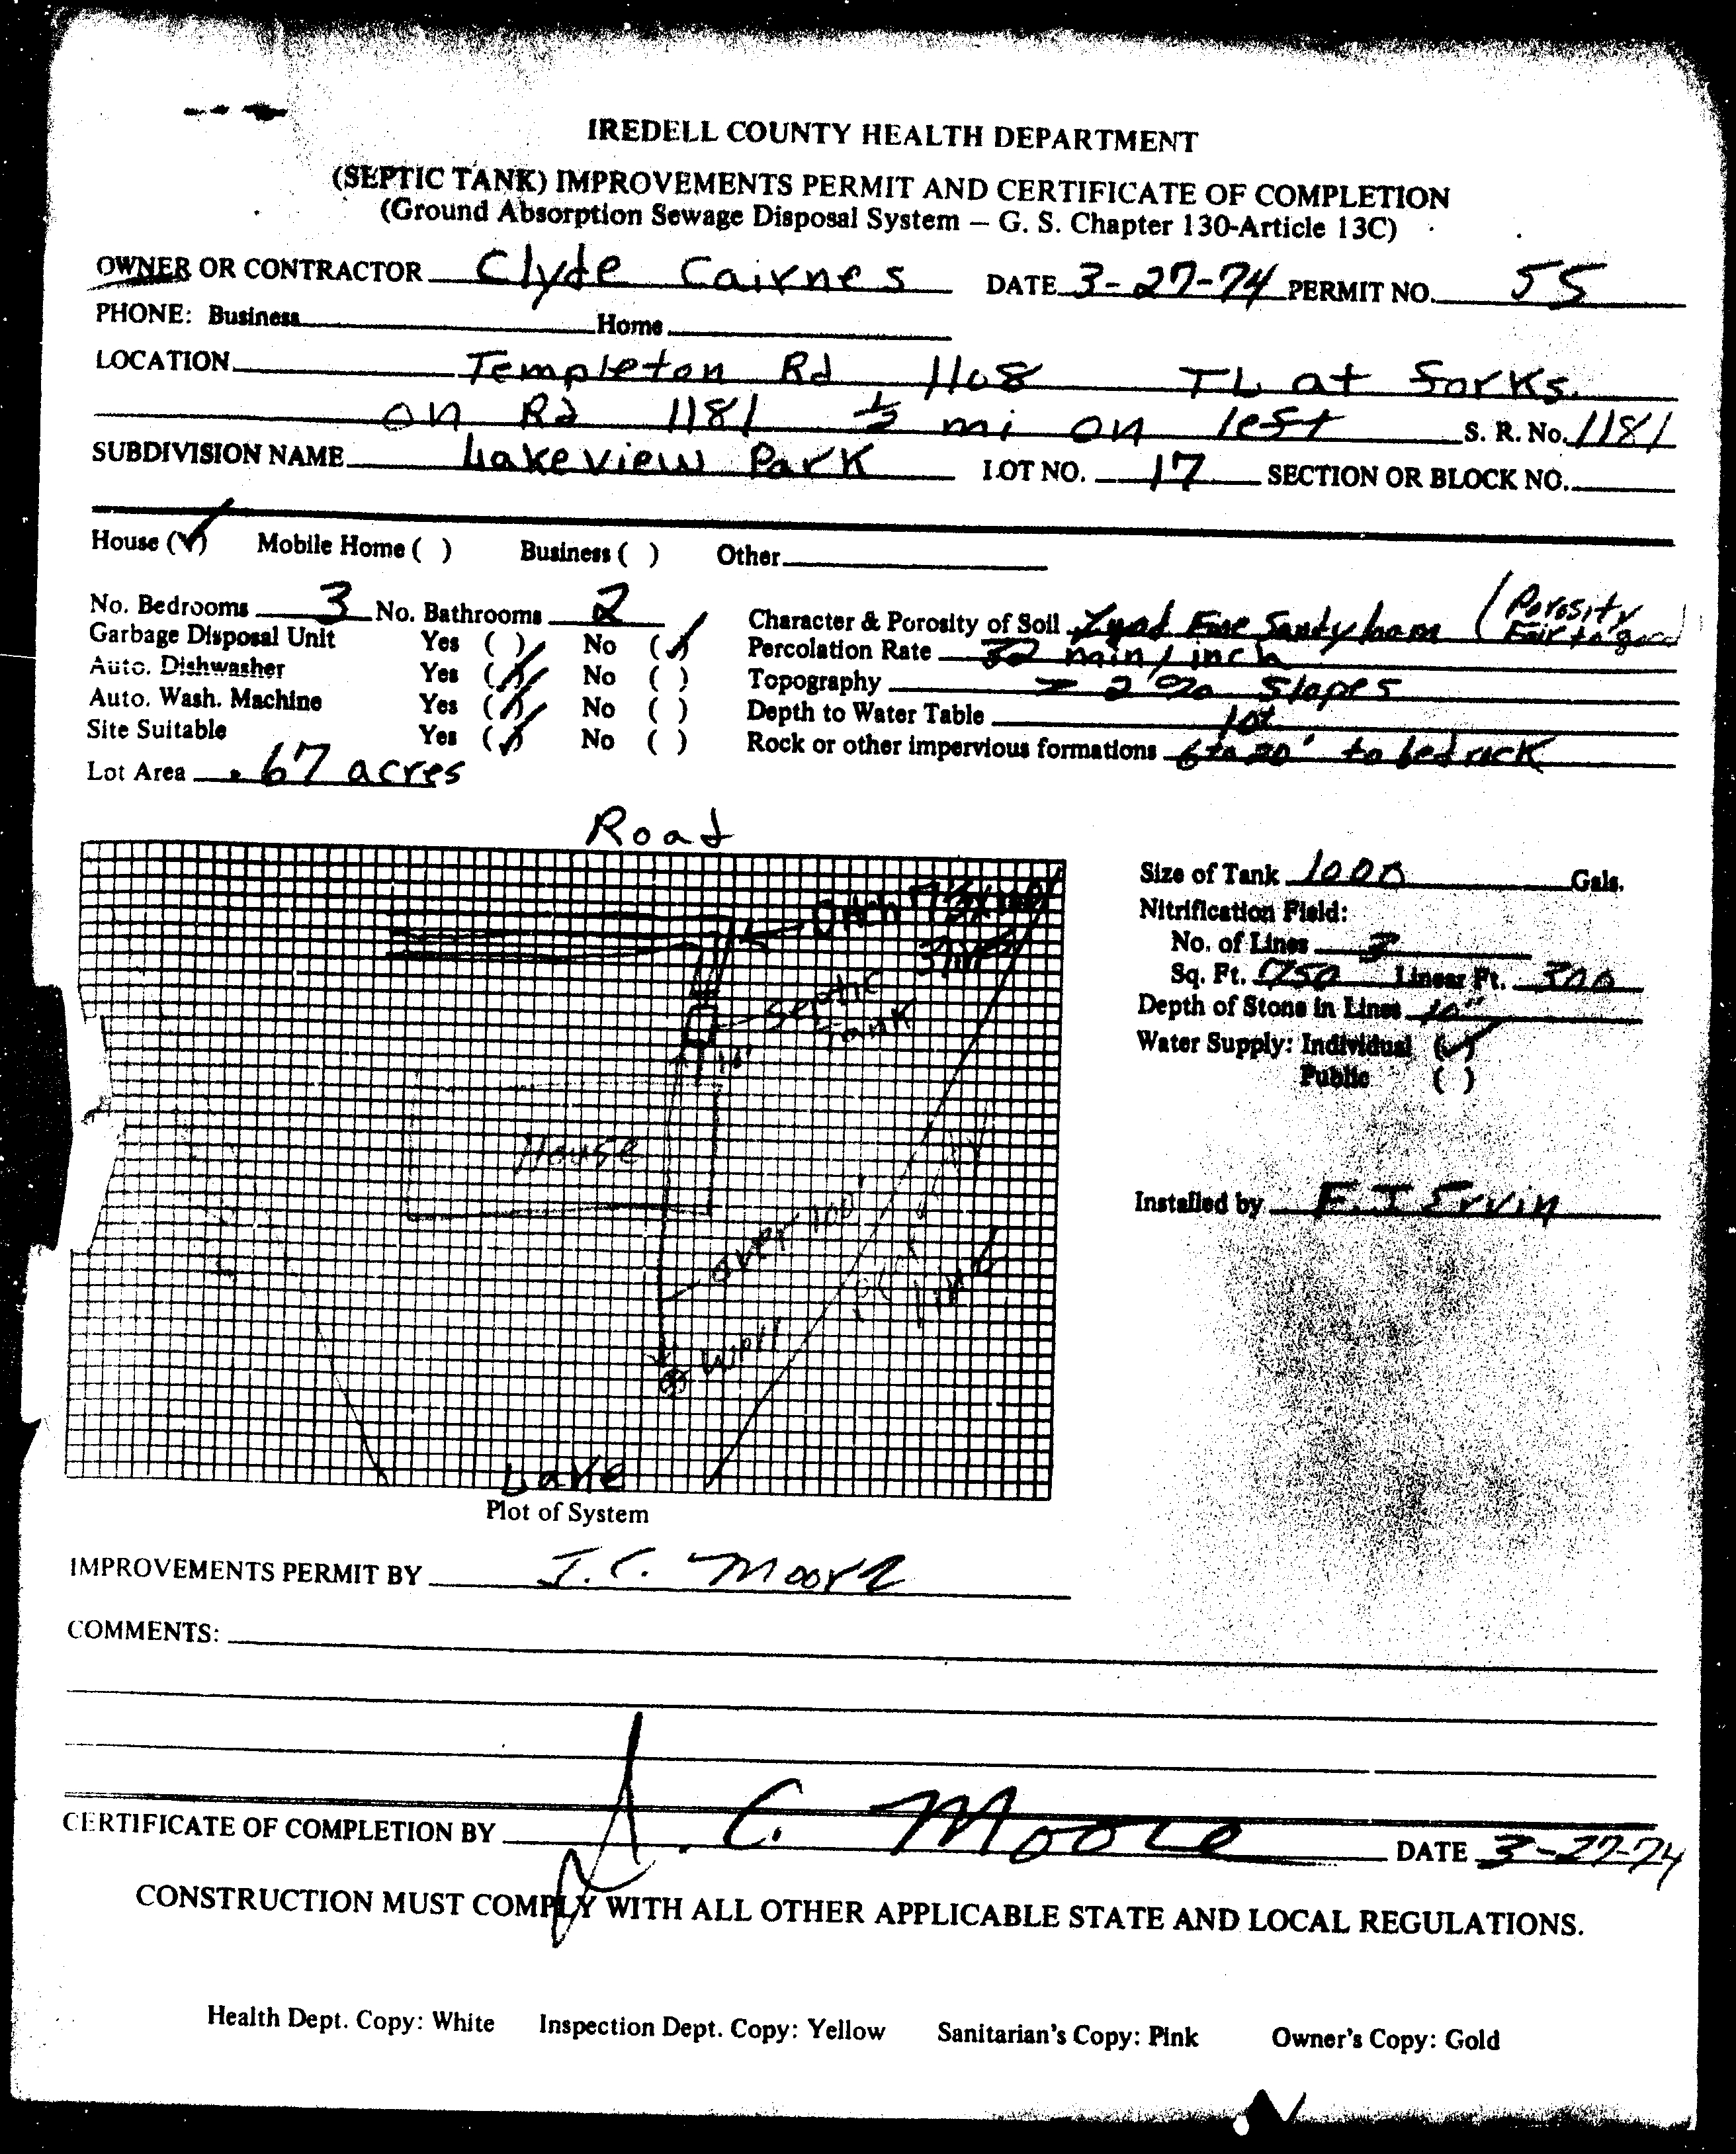 IREDELL COUNTY HEALTH DEPARTMENT
(SEPTIC TANK) IMPROVEMENTS PERMIT AND CERTIFICATE OF COMPLETION
(Ground Absorption Sewage Disposal System – G. S. Chapter 130-Article 13C)
OWNER OR CONTRACTOR Clyde Cairnes DATE 3-27-74 PERMIT NO. 55
PHONE: Business Home
LOCATION Templeton Rd 1108 TL at forks.
on Rd 1181 ½ mi on left S. R. No. 1181
SUBDIVISION NAME Lakeview Park LOT NO. 17 SECTION OR BLOCK NO.
House (✓) Mobile Home ( ) Business ( ) Other
No. Bedrooms 3 No. Bathrooms 2 Character & Porosity of Soil Fine Sandy loam (Porosity Fair to good)
Garbage Disposal Unit Yes ( ) No (✓) Percolation Rate min/inch
Auto. Dishwasher Yes (✓) No ( ) Topography 2% slopes
Auto. Wash. Machine Yes (✓) No ( ) Depth to Water Table
Site Suitable Yes (✓) No ( ) Rock or other impervious formations 6 to 20' to bedrock
Lot Area .67 acres
Road
Size of Tank 1000 Gals.
Nitrification Field:
No. of Lines 3
Sq. Ft. Linear Ft. 300
Depth of Stone in Lines 10"
Water Supply: Individual (✓)
Public ( )
Septic
Tank
House
over 100'
Well
line
Installed by F. I Ervin
Lake
Plot of System
IMPROVEMENTS PERMIT BY J. C. Moore
COMMENTS:
CERTIFICATE OF COMPLETION BY J. C. Moore DATE 3-27-74
CONSTRUCTION MUST COMPLY WITH ALL OTHER APPLICABLE STATE AND LOCAL REGULATIONS.
Health Dept. Copy: White Inspection Dept. Copy: Yellow Sanitarian's Copy: Pink Owner's Copy: Gold